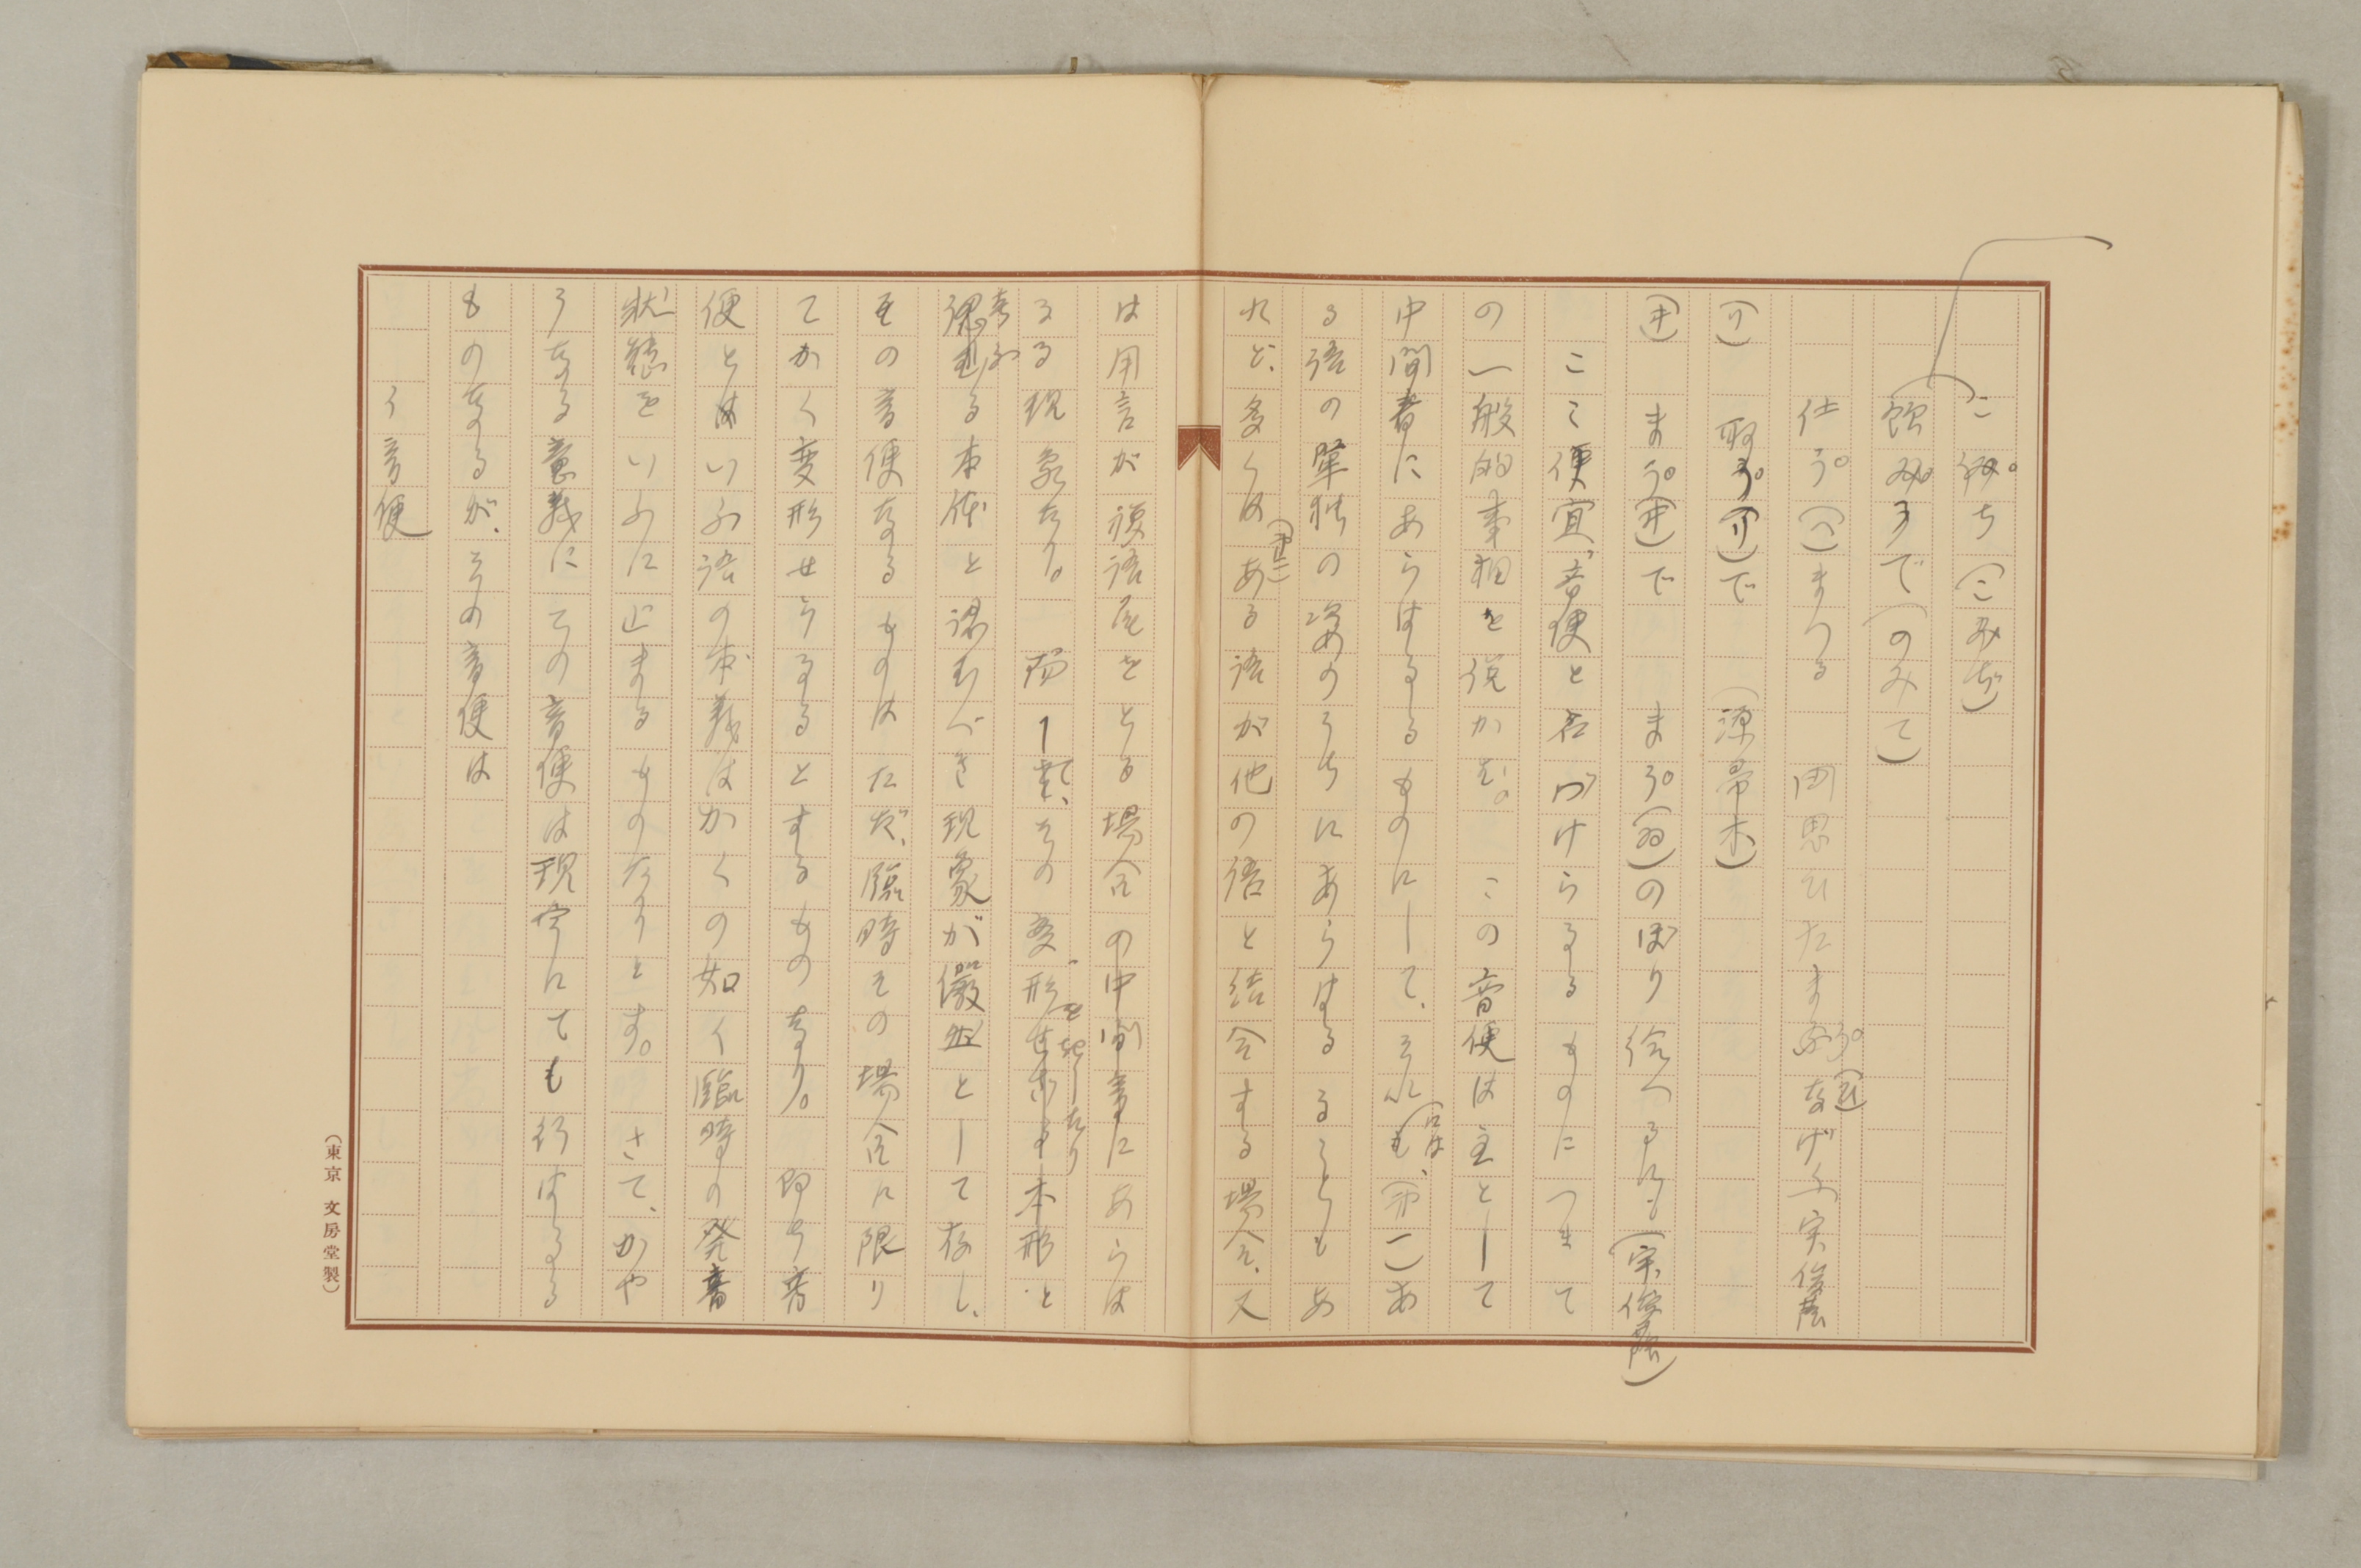 こうぢ(こみぢ)
飲みうで(のみて)
仕う(へ)まつる 思ひたまふう(ひ)なげ 実俊蔭
取う(り)で (源帚木)
まう(ゐ)で まう(ゐ)のぼり給へるにも(宇、俊蔭)
ここに便宜音便と名づけらるるものにつきて
の一般的事相を説かむ。 この音便は主として
中間音にあらはるるものにして、それも(には、)(第一)あ
る語の単独の姿のうちにあらはるることもあ
れど、多くは(第二)ある語が他の語と結合する場合、又
は用言が複語尾をとる場合の中間音にあらは
るる現象なり。 而して、その変形をおこしたり本形と
考ふる本体と認むべき現象が儼然として存し、
その音便なるものはただ、臨時その場合に限り
てかく変形せらるるとするものなり。 即ち音
便とはいふ語の本義はかくの如く臨時の発音
状態をいふに止まるものなりとす。 さて、かや
うなる意義にての音便は現今にても行はるる
ものなるが、その音便は
う音便
(東京 文房堂製)